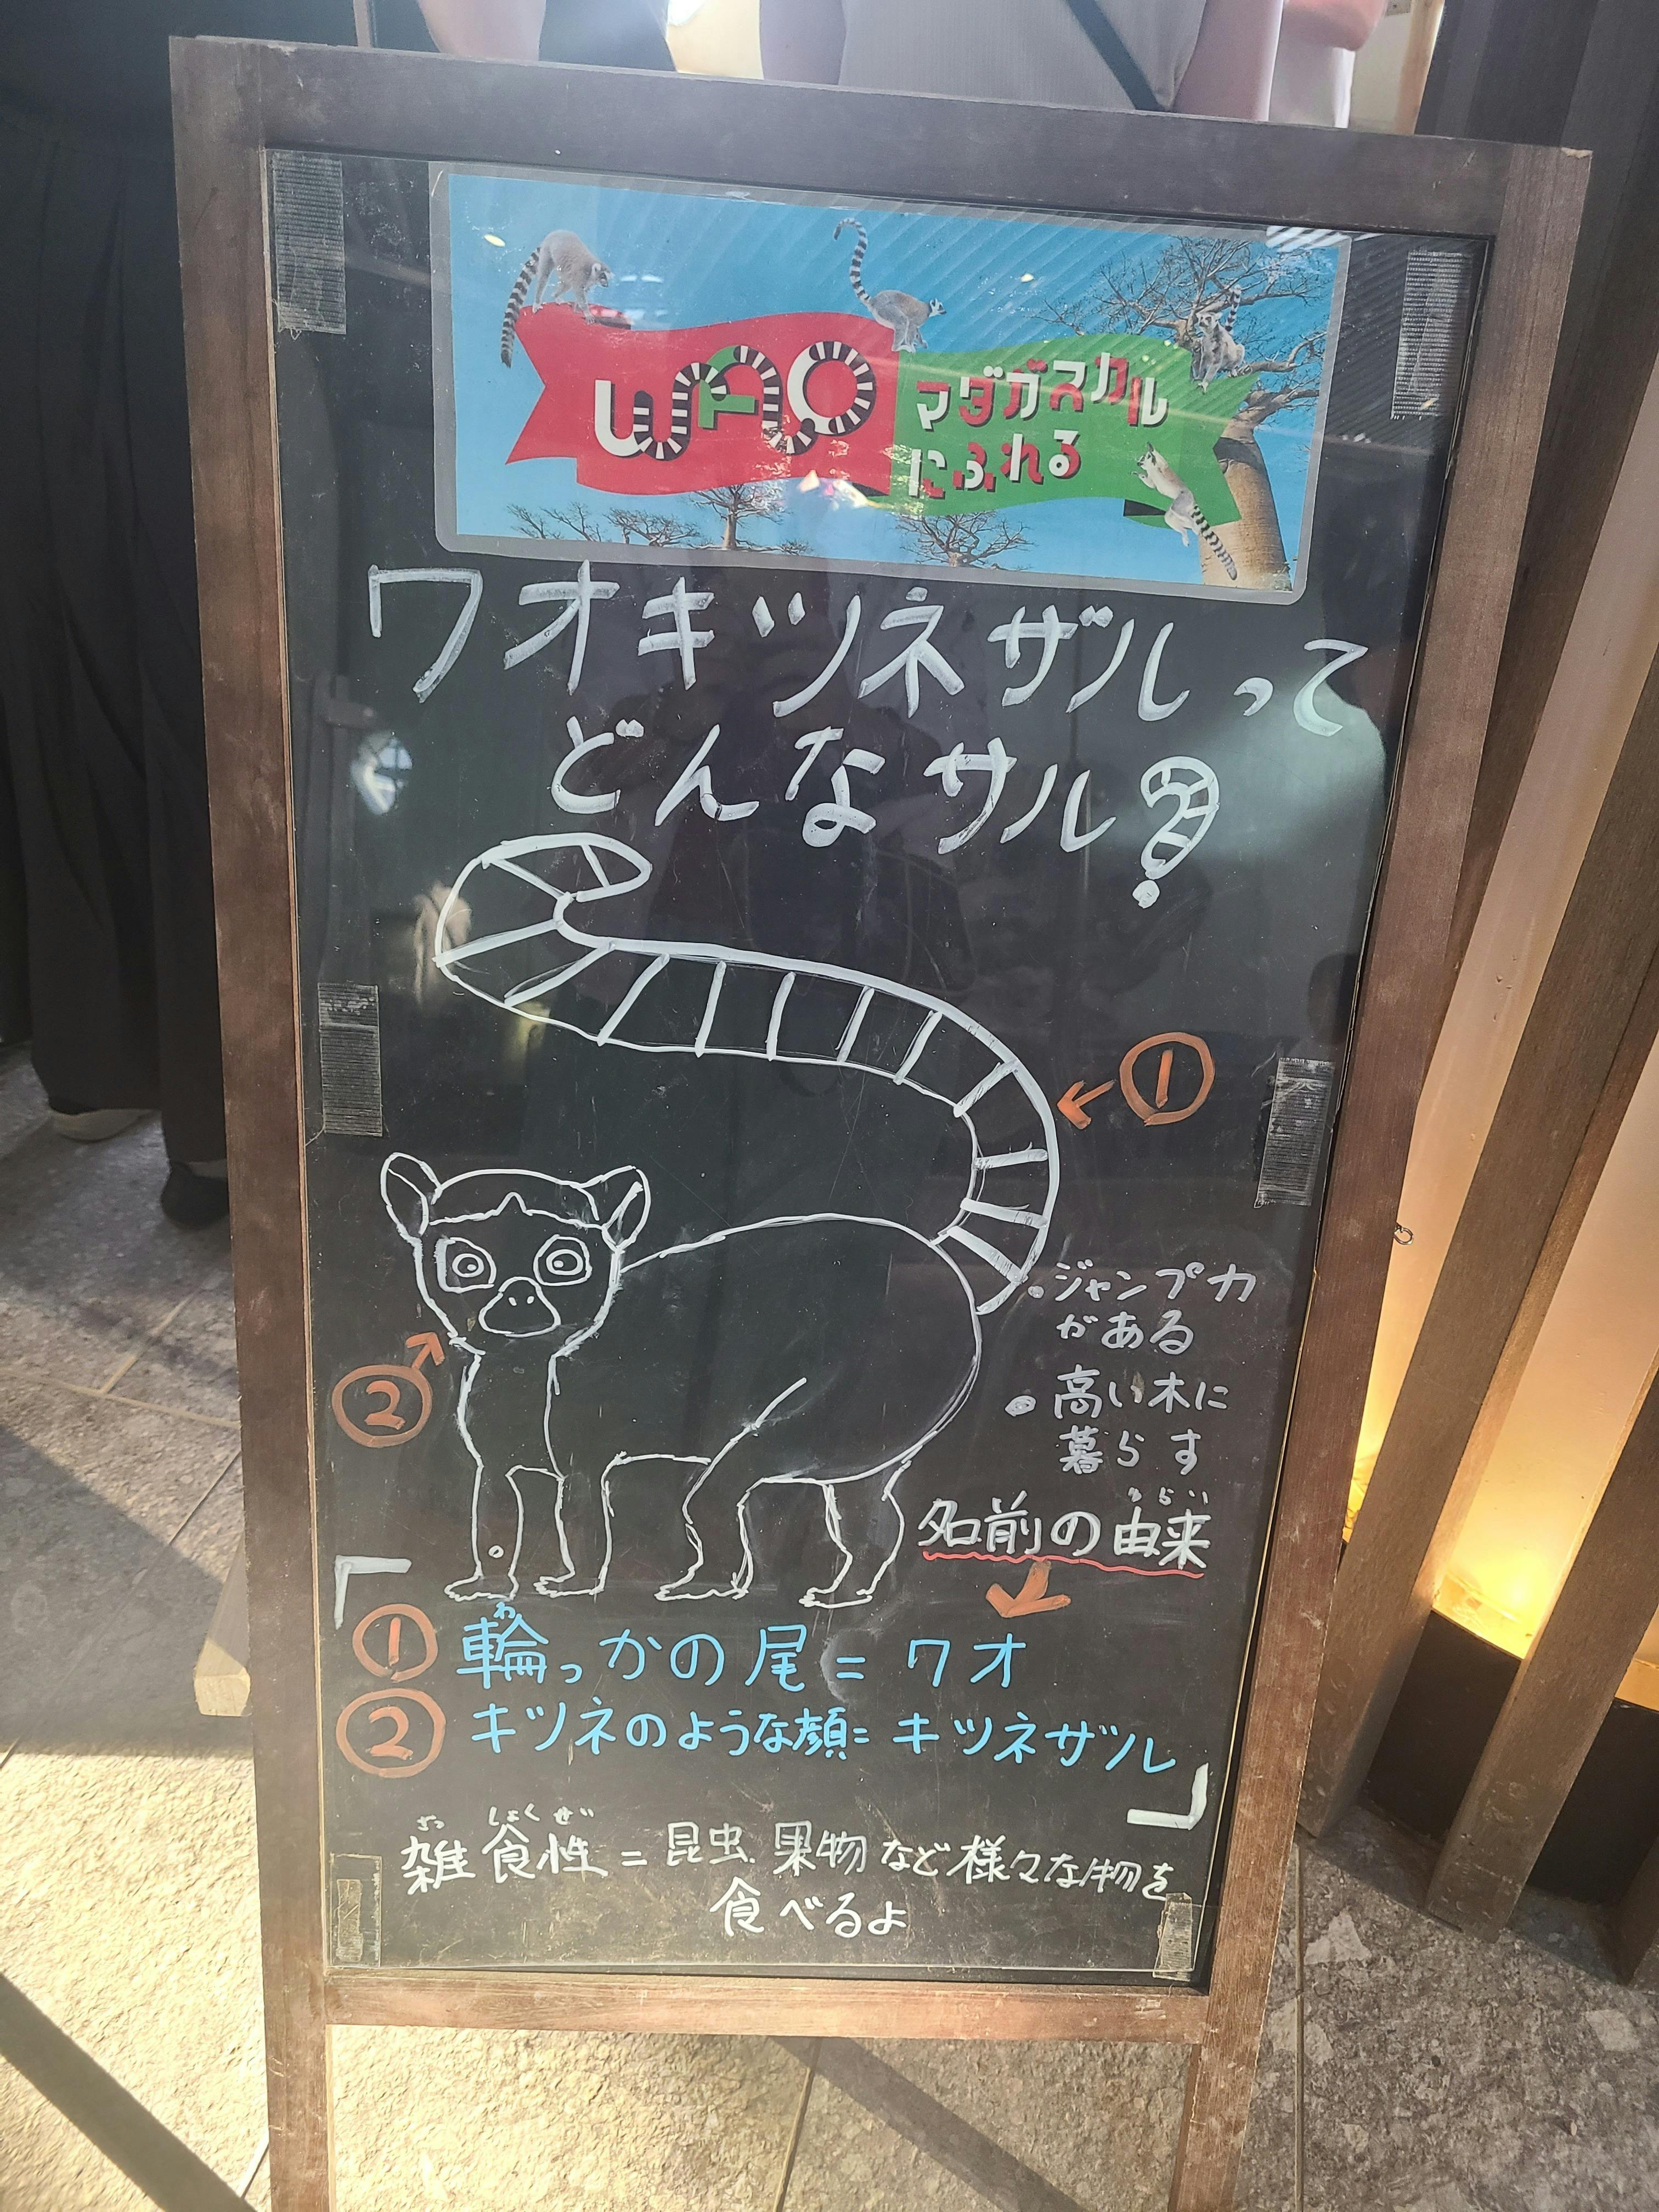 WAO
マダガスカル
にふれる
ワオキツネザルって
どんなサル?
①
・ジャンプ力
がある
②
・高い木に
暮らす
ゆらい
名前の由来
わ
①輪っかの尾=ワオ
②キツネのような顔=キツネザル
ざっしょくせい
雑食性=昆虫、果物など様々な物を
食べるよ